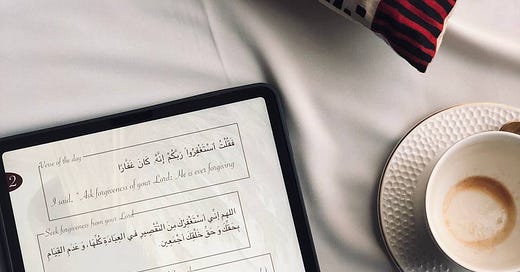 Verse of the day
فَقُلْتُ اسْتَغْفِرُوا رَبَّكُمْ إِنَّهُ كَانَ غَفَّارًا
I said, "Ask forgiveness of your Lord: He is ever forgiving
2
Seek forgiveness from your Lord
اللهم إني أستغفرك من التقصير في العبادة كلها، و عدم القيام
بحقك و حق خلقك أجمعين